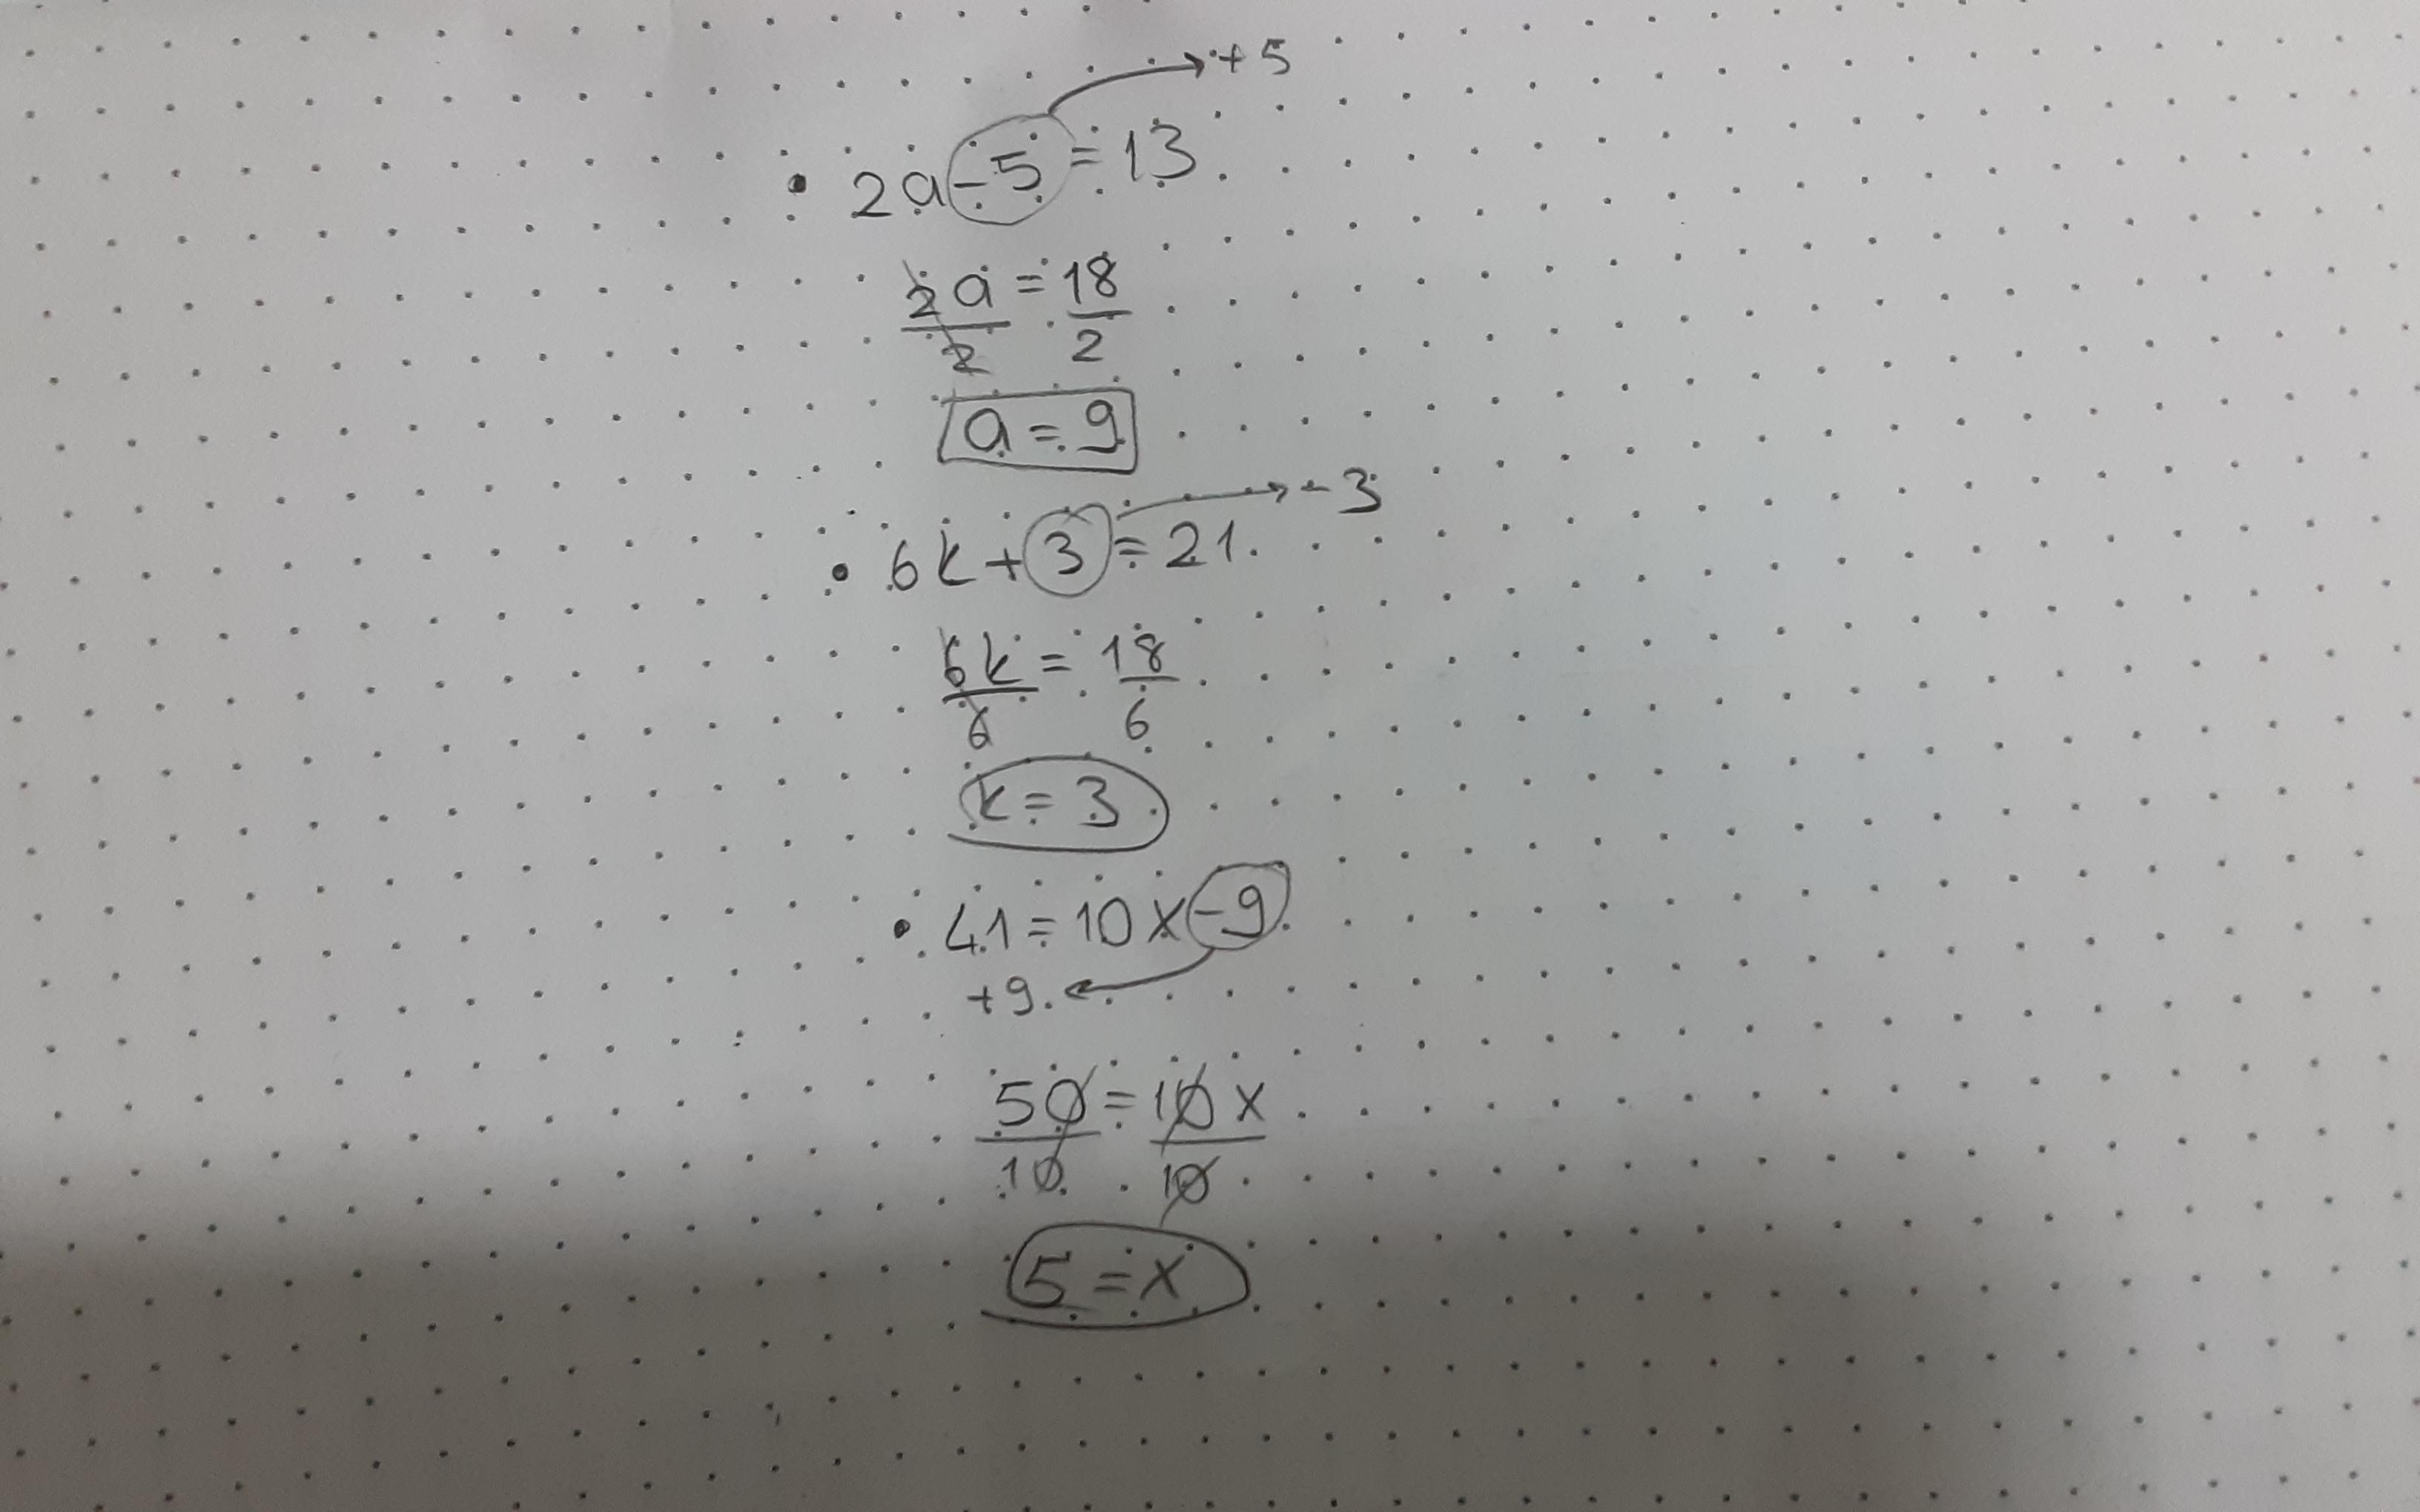 → +5
• 2a - 5 = 13
2a = 18
2 2
a = 9
→ -3
• 6k + 3 = 21
6k = 18
6 6
k = 3
• 41 = 10x - 9
+9 ←
50 = 10x
10 10
5 = x